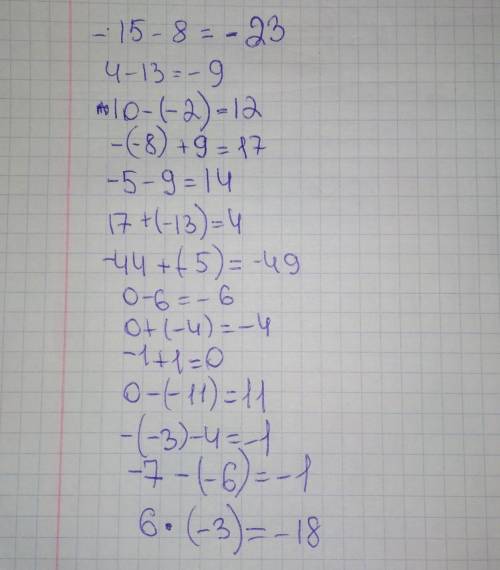 -15-8=-23
4-13=-9
10-(-2)=12
-(-8)+9=17
-5-9=14
17+(-13)=4
-44+(-5)=-49
0-6=-6
0+(-4)=-4
-1+1=0
0-(-11)=11
-(-3)-4=-1
-7-(-6)=-1
6·(-3)=-18